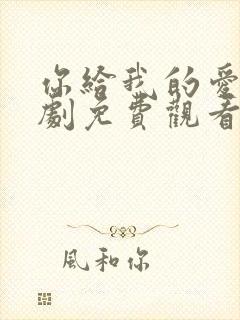 你給我的愛
劇免費觀看
風和你